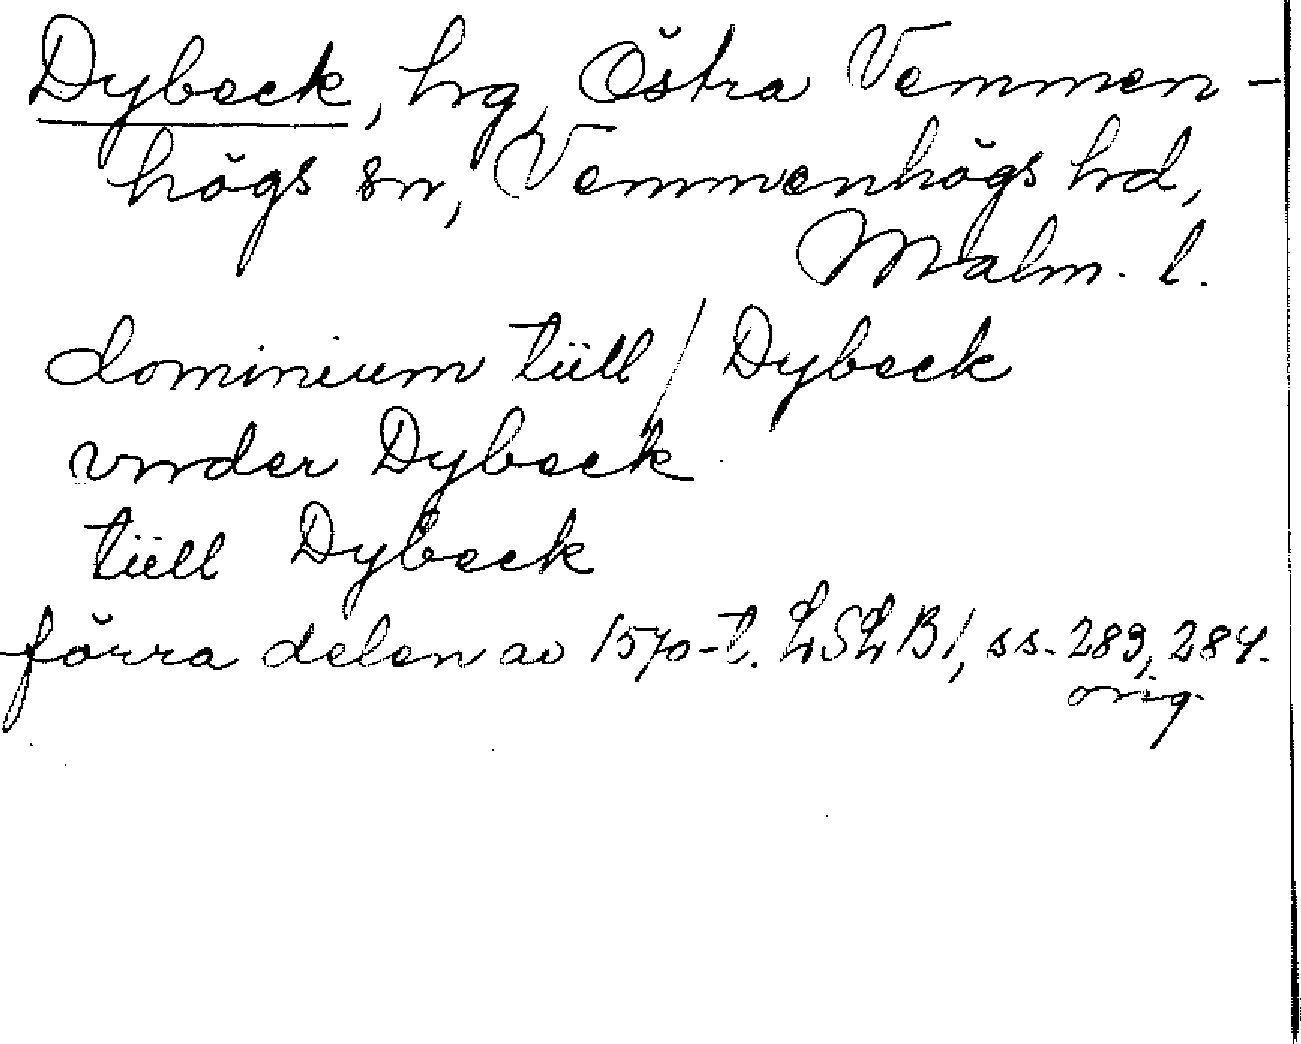 Dybeck, hg, Östra Vemmen-
högs sn, Vemmenhögs hd,
Malm. l.
dominium tiill / Dybeck
vnder Dybeck
tiill Dybeck
förra delen av 1570-t. LSLB1, ss. 283, 284.
orig.